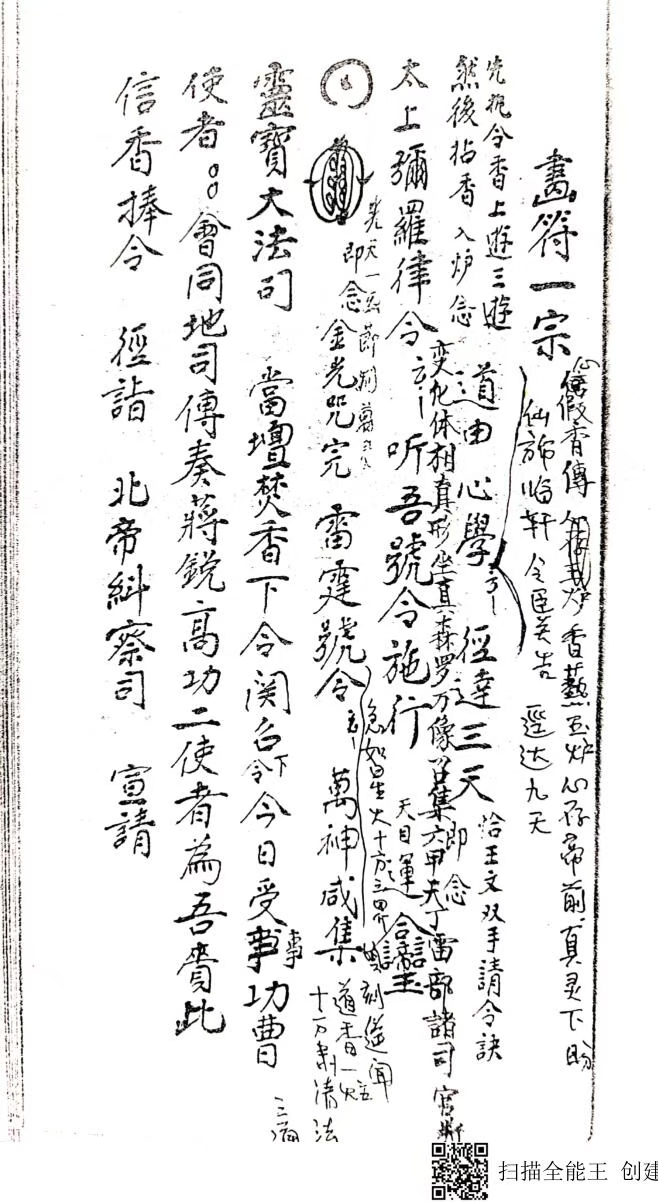 畫符一宗
心假香傳 香爇玉炉 心存帝前 真灵下盼
仙旆临轩 令臣关告 迳达九天
先执令香上遊三遊
然後拈香入炉念
道由心學 徑達三天 即念
恰王文双手請令訣
变化体相真形坐真森罗万像召集六甲天丁雷部諸司官
太上彌羅律令 听吾號令施行
天目運
即念金光咒完 雷霆號令 萬神咸集
急如星火十方三界
刻遥闻
道香一炷
十方肃清法
靈寶大法司 當壇焚香下令関名下令今日受事功曹
三滴
使者 會同地司傳奏蔣鋭高功二使者為吾賫此
信香捧令 徑詣 北帝糾察司 宣請
扫描全能王 创建